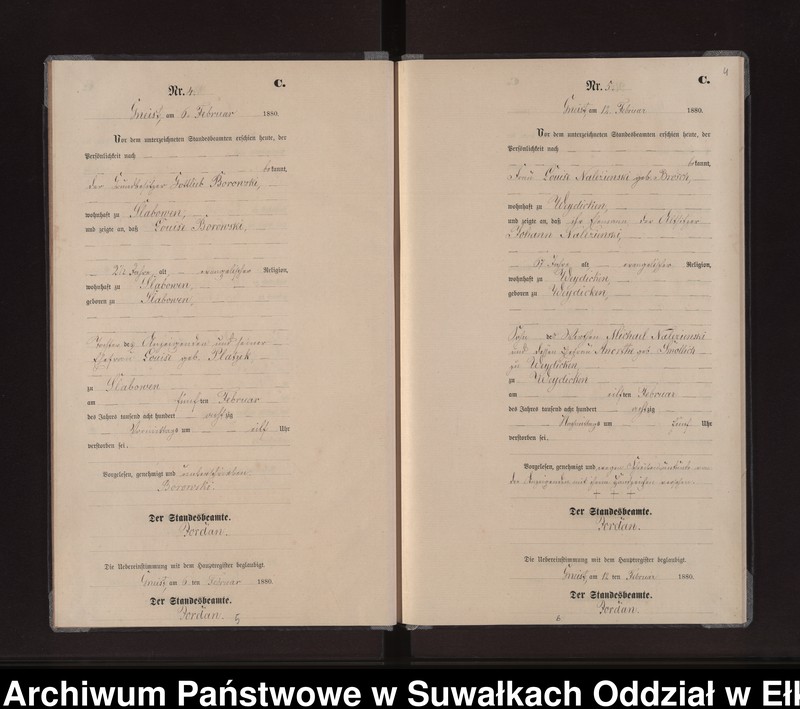 C.
Nr. 4.
Gneist, am 6. Februar 1880.
Vor dem unterzeichneten Standesbeamten erschien heute, der
Persönlichkeit nach
bekannt,
der Grundbesitzer Gottlieb Borowski,
wohnhaft zu Slabowen,
und zeigte an, daß Louise Borowski,
Jahre, alt, evangelischer Religion,
wohnhaft zu Slabowen,
geboren zu Slabowen,
Tochter des Anzeigenden und seiner
Ehefrau Louise geb. Platzek
zu Slabowen
am fünften Februar
des Jahres tausend acht hundert achtzig
Vormittags um eilf Uhr
verstorben sei.
Vorgelesen, genehmigt und unterschrieben
Borowski.
Der Standesbeamte.
Jordan.
Die Uebereinstimmung mit dem Hauptregister beglaubigt.
Gneist, am 6 ten Februar 1880.
Der Standesbeamte.
Jordan.
5
4
C.
Nr. 5.
Gneist, am 12. Februar 1880.
Vor dem unterzeichneten Standesbeamten erschien heute, der
Persönlichkeit nach
bekannt,
Frau Louise Nalezinski geb. Brosch,
wohnhaft zu Weydicken,
und zeigte an, daß ihr Ehemann der Altsitzer
Johann Nalezinski,
Jahre, alt evangelischer Religion,
wohnhaft zu Weydicken,
geboren zu Weydicken,
Sohn des Michael Nalezinski
und dessen Ehefrau geb.
zu Weydicken
zu Weydicken
am eilften Februar
des Jahres tausend acht hundert achtzig
Nachmittags um fünf Uhr
verstorben sei.
Vorgelesen, genehmigt und wegen Schreibensunkunde von
der Anzeigenden mit ihrem Handzeichen versehen.
+ + +
Der Standesbeamte.
Jordan.
Die Uebereinstimmung mit dem Hauptregister beglaubigt.
Gneist, am 12 ten Februar 1880.
Der Standesbeamte.
Jordan.
6
Archiwum Państwowe w Suwałkach Oddział w Ełk